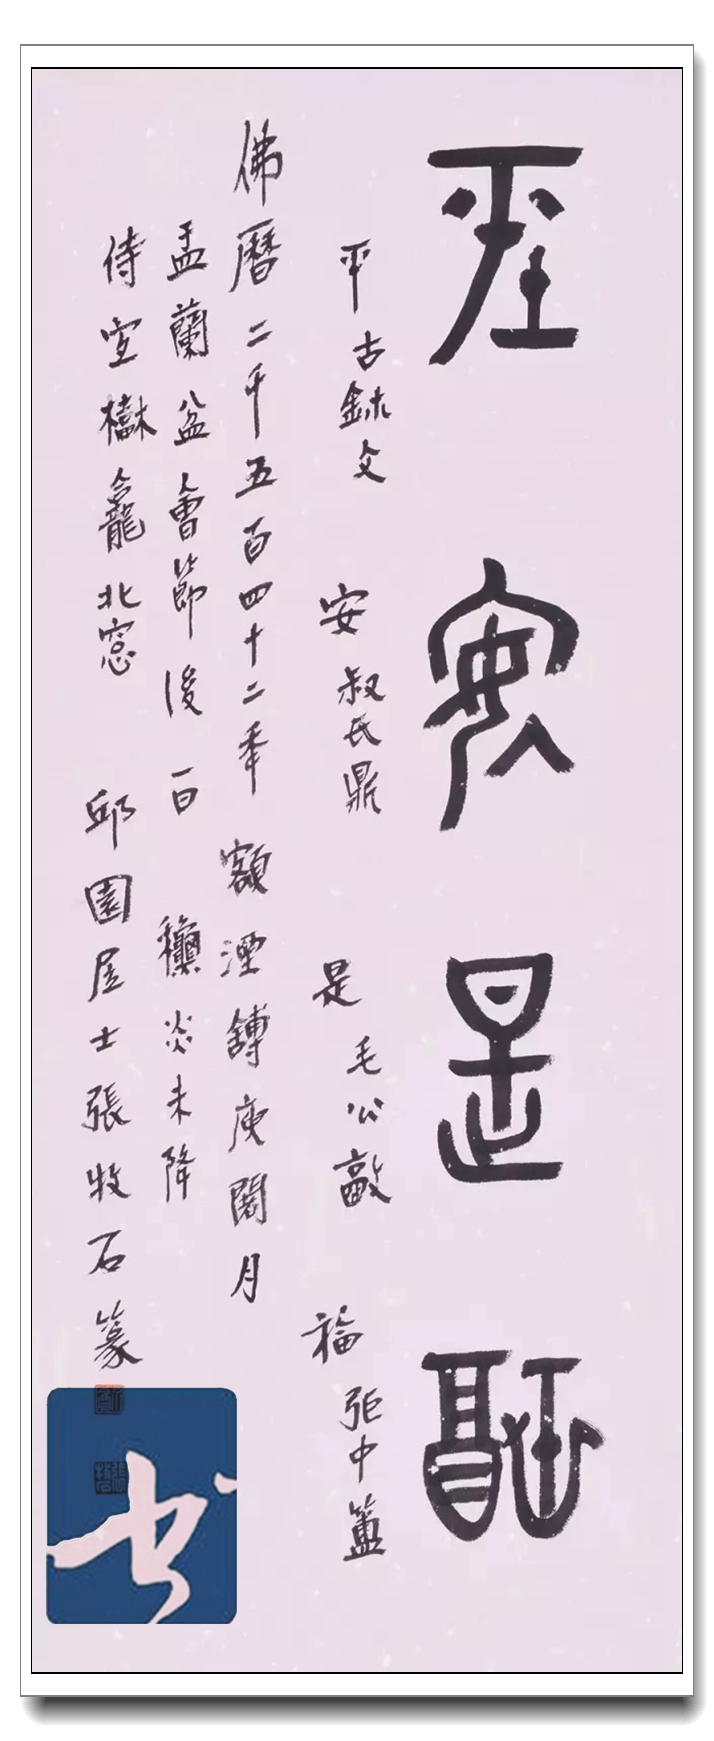 平安是福
平 古鉨文 安 叔氏鼎 是 毛公 福 弡中簠
佛曆二千五百四十二秊 月
盂蘭盆會節後一日 炎未降
侍宣樹龕北窓 邱園居士張牧石篆
书